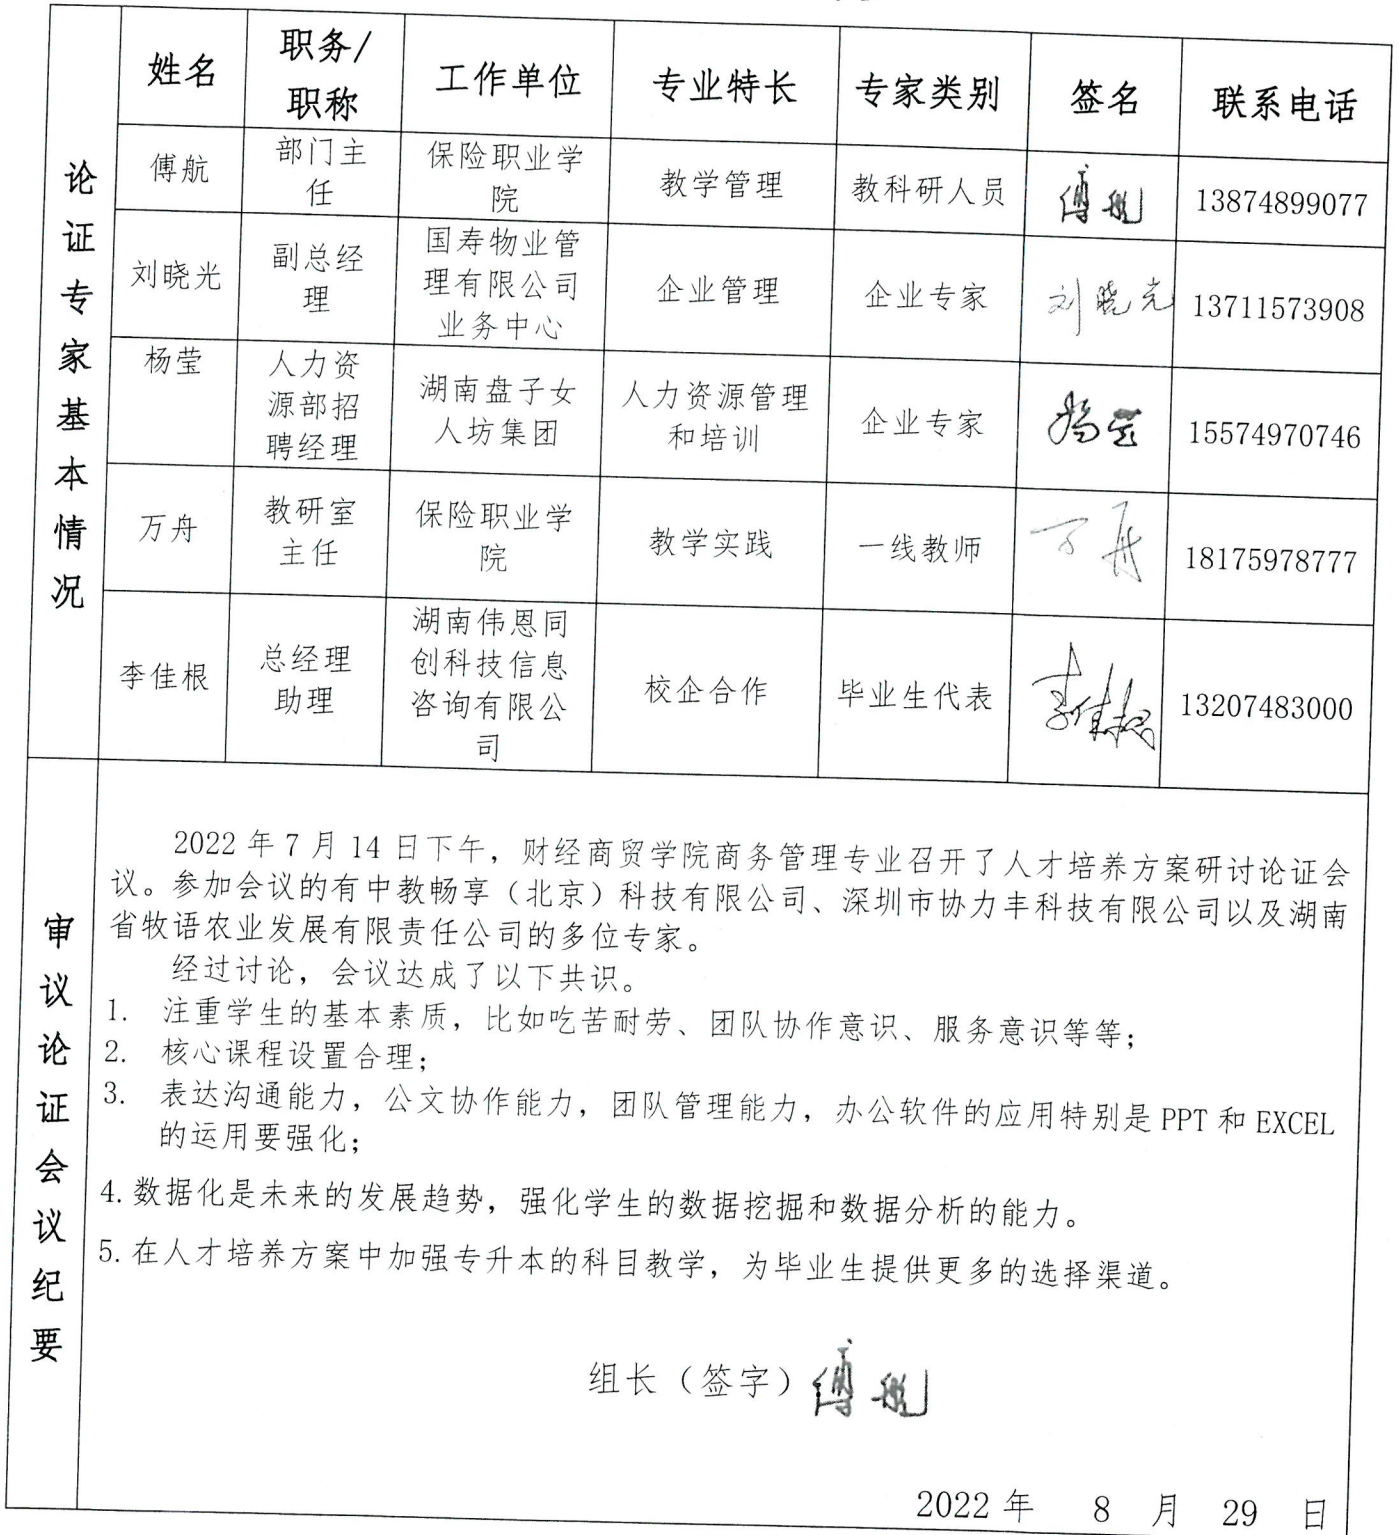 姓名 职务/职称 工作单位 专业特长 专家类别 签名 联系电话
论证专家基本情况
傅航 部门主任 保险职业学院 教学管理 教科研人员 傅航 13874899077
刘晓光 副总经理 国寿物业管理有限公司业务中心 企业管理 企业专家 刘晓光 13711573908
杨莹 人力资源部招聘经理 湖南盘子女人坊集团 人力资源管理和培训 企业专家 杨莹 15574970746
万舟 教研室主任 保险职业学院 教学实践 一线教师 万舟 18175978777
李佳根 总经理助理 湖南伟恩同创科技信息咨询有限公司 校企合作 毕业生代表 李佳根 13207483000
审议论证会议纪要
2022年7月14日下午，财经商贸学院商务管理专业召开了人才培养方案研讨论证会
议。参加会议的有中教畅享（北京）科技有限公司、深圳市协力丰科技有限公司以及湖南
省牧语农业发展有限责任公司的多位专家。
经过讨论，会议达成了以下共识。
1. 注重学生的基本素质，比如吃苦耐劳、团队协作意识、服务意识等等；
2. 核心课程设置合理；
3. 表达沟通能力，公文协作能力，团队管理能力，办公软件的应用特别是PPT和EXCEL
的运用要强化；
4.数据化是未来的发展趋势，强化学生的数据挖掘和数据分析的能力。
5.在人才培养方案中加强专升本的科目教学，为毕业生提供更多的选择渠道。
组长（签字）傅航
2022年 8 月 29 日